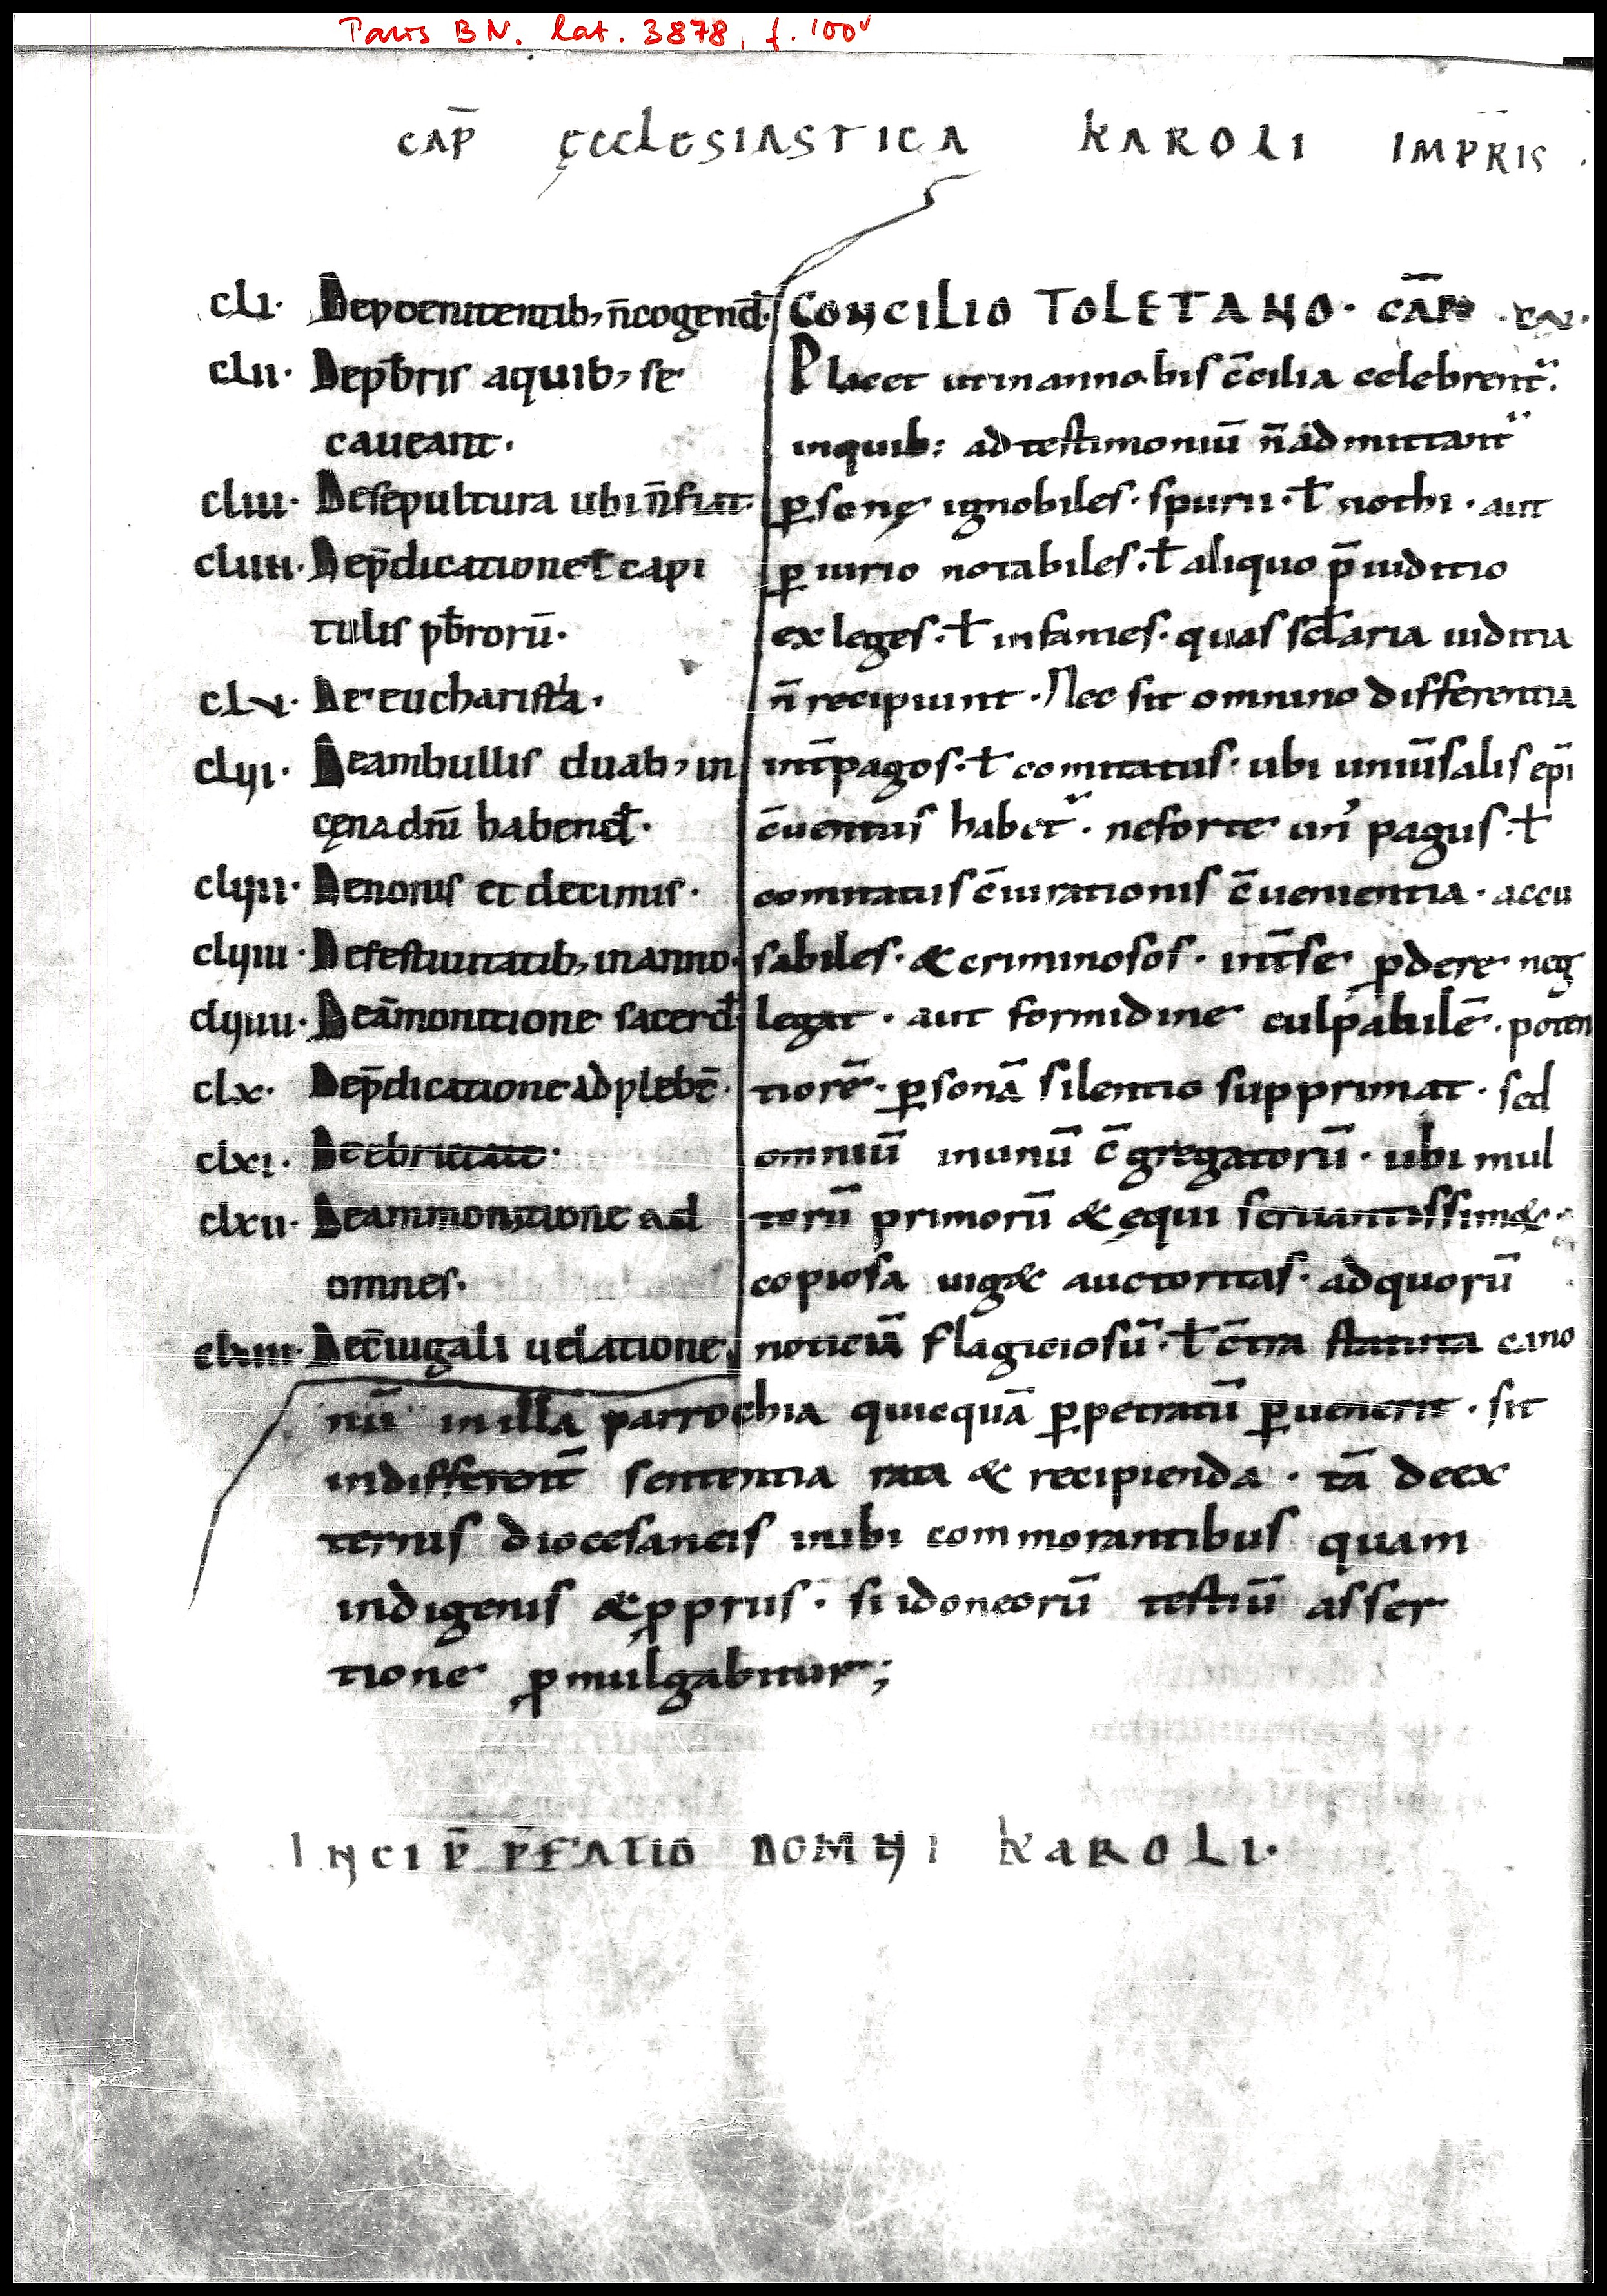 Paris BN. lat. 3878, f. 100v
CAP̄ ĘCCLESIASTICA KAROLI IMPR̄IS.
clı. Depoenitentib; n̄cogend̄.
clıı. Depb̄ris aquib; se
caueant.
clııı. Desepultura ubi n̄fiat.
clıııı. Dep̄dicatione ꝉ capi
tulis pb̄rorū.
clv. De eucharistia.
clvı. Deambullis duab; in
cęnadnī habend̄.
clvıı. Denonis et decimis.
clvııı. Defestiuitatib; inanno.
clvıııı. Deām̄onitione sacerd̄.
clx. Dep̄dicatione adplebē.
clxı. Deebrietate.
clxıı. Deammonitione ad
omnes.
clxııı. Dec̄iugali uelatione.
CONCILIO TOLETANO. CAP̄
Placet utinanno bis c̄cilia celebrent᷑.
inquib; adtestimoniū n̄admittant᷑
ꝑsonę ignobiles. spurii. ꝉ nothi. aut
ꝑiurio notabiles. ꝉ aliquo p̄iuditio
exleges. ꝉ infames. quas sc̄laria iuditia
n̄ recipiunt. Nec sit omnino differentia
int̄ pagos. ꝉ comitatus. ubi uniūsalis ep̄i
c̄uentus habet᷑. neforte un᾽ pagus. ꝉ
comitatus c̄iurationis c̄uenientia. accu
sabiles. & criminosos. int̄se ꝓdere neg
legat. aut formidine culpabilē. poten
tiorē. ꝑsonā silentio supprimat. sed
omniū inunū c̄gregatorū. ubi mul
torū primorū & ęqui seruantissim&.
copiosa uig& auctoritas. adquorū
noticiā flagiciosū. ꝉ c̄tra statuta cano
nū in illa parrochia quicquā ꝑpetratū ꝑuenerit. sit
indifferent̄ sententia rata & recipienda. tā deex
ternis diocesaneis inibi commorantibus quam
indigenis & ꝓpriis. si idoneorū testiū asser
tione ꝓmulgabitur;
INCIP̄ P̄FATIO DOMNI KAROLI.